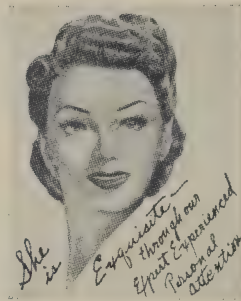 She
is
Exquisite—
through our
Expert Experienced
Personal
attention